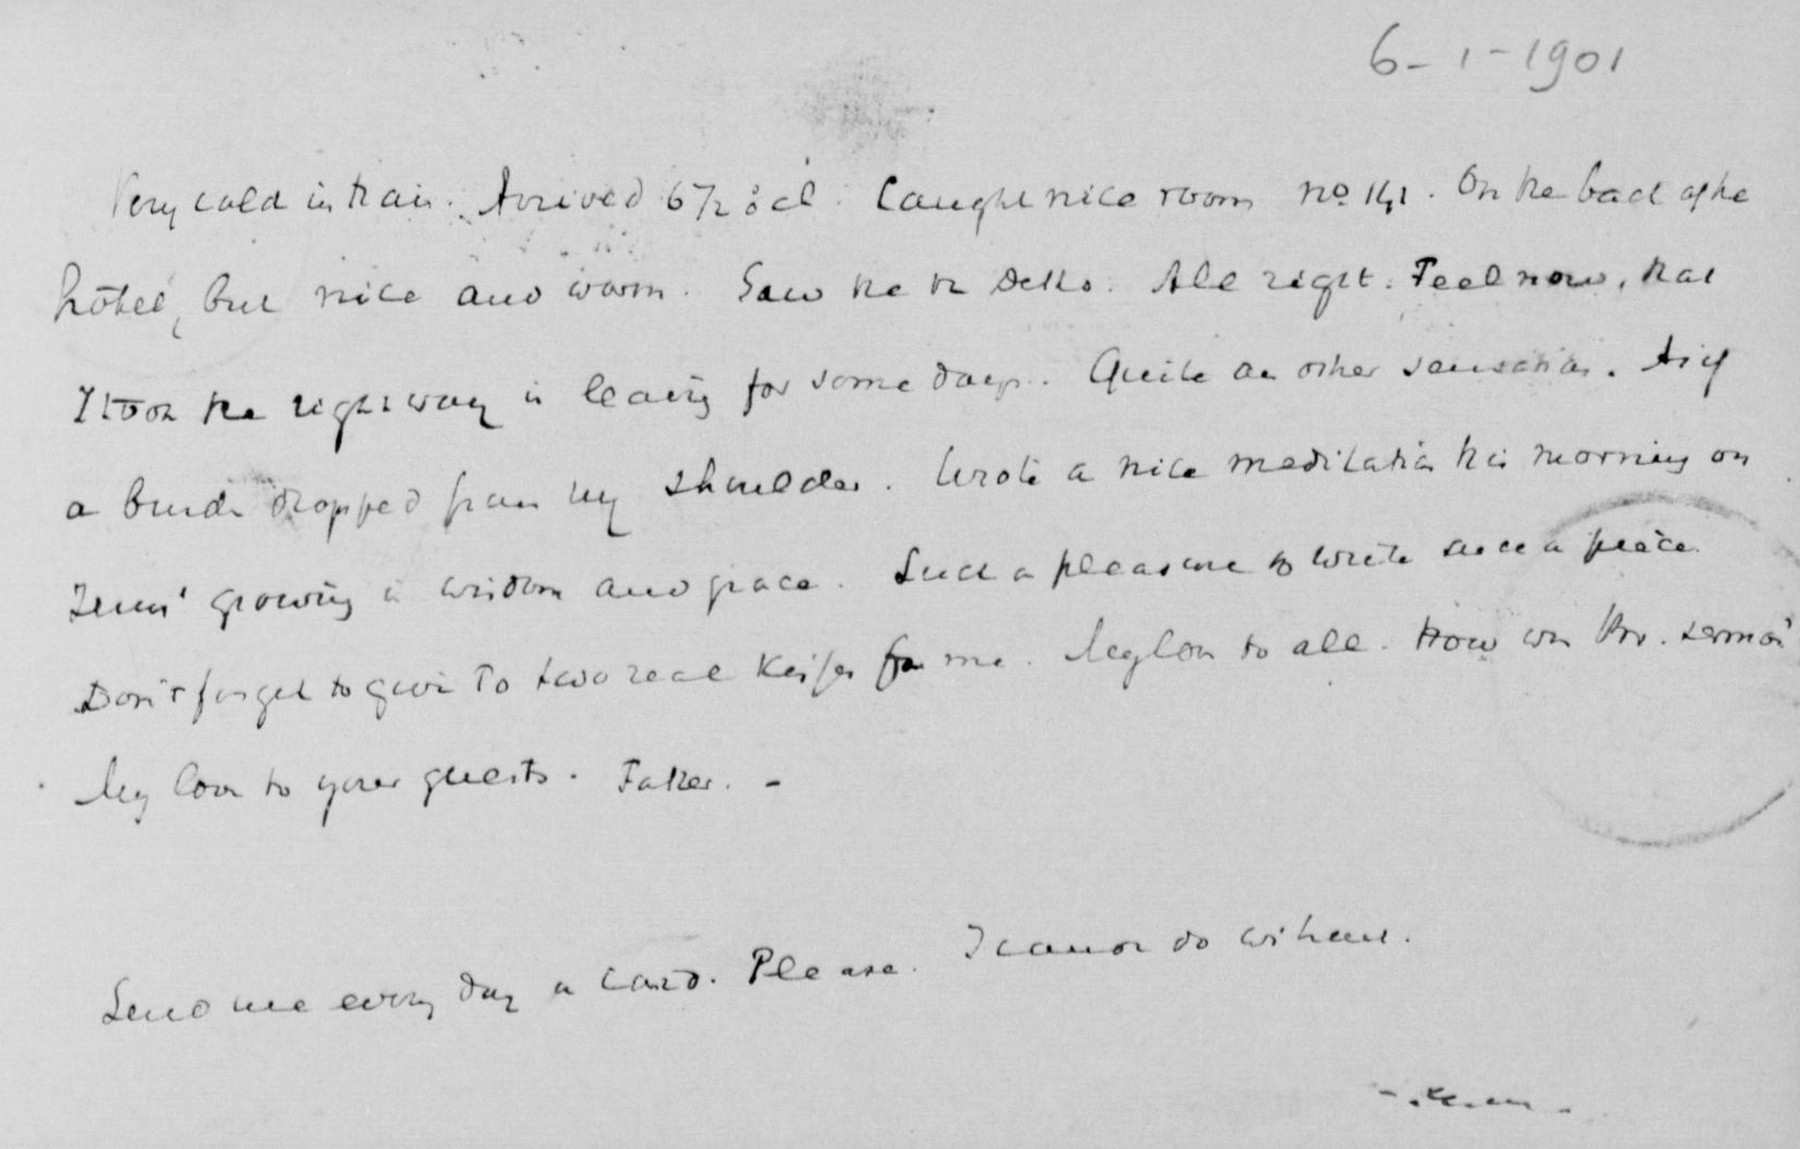 6-1-1901
Very cold in train. Arrived 6 1/2 o'cl. Caught nice room no 141. On the back of the
hôtel, but nice and warm. Saw the All right. Feel now, that
I took the right way in leaving for some days. Quite an other sensation. As if
a burden dropped from my shoulder. Wrote a nice meditation this morning on
Jesus' growing in wisdom and grace. Such a pleasure to write such a piece.
Don't forget to give To two real for me. My love to all. How was sermon
My love to your guests. Father. -
Send me every day a card. Please. I cannot do without.